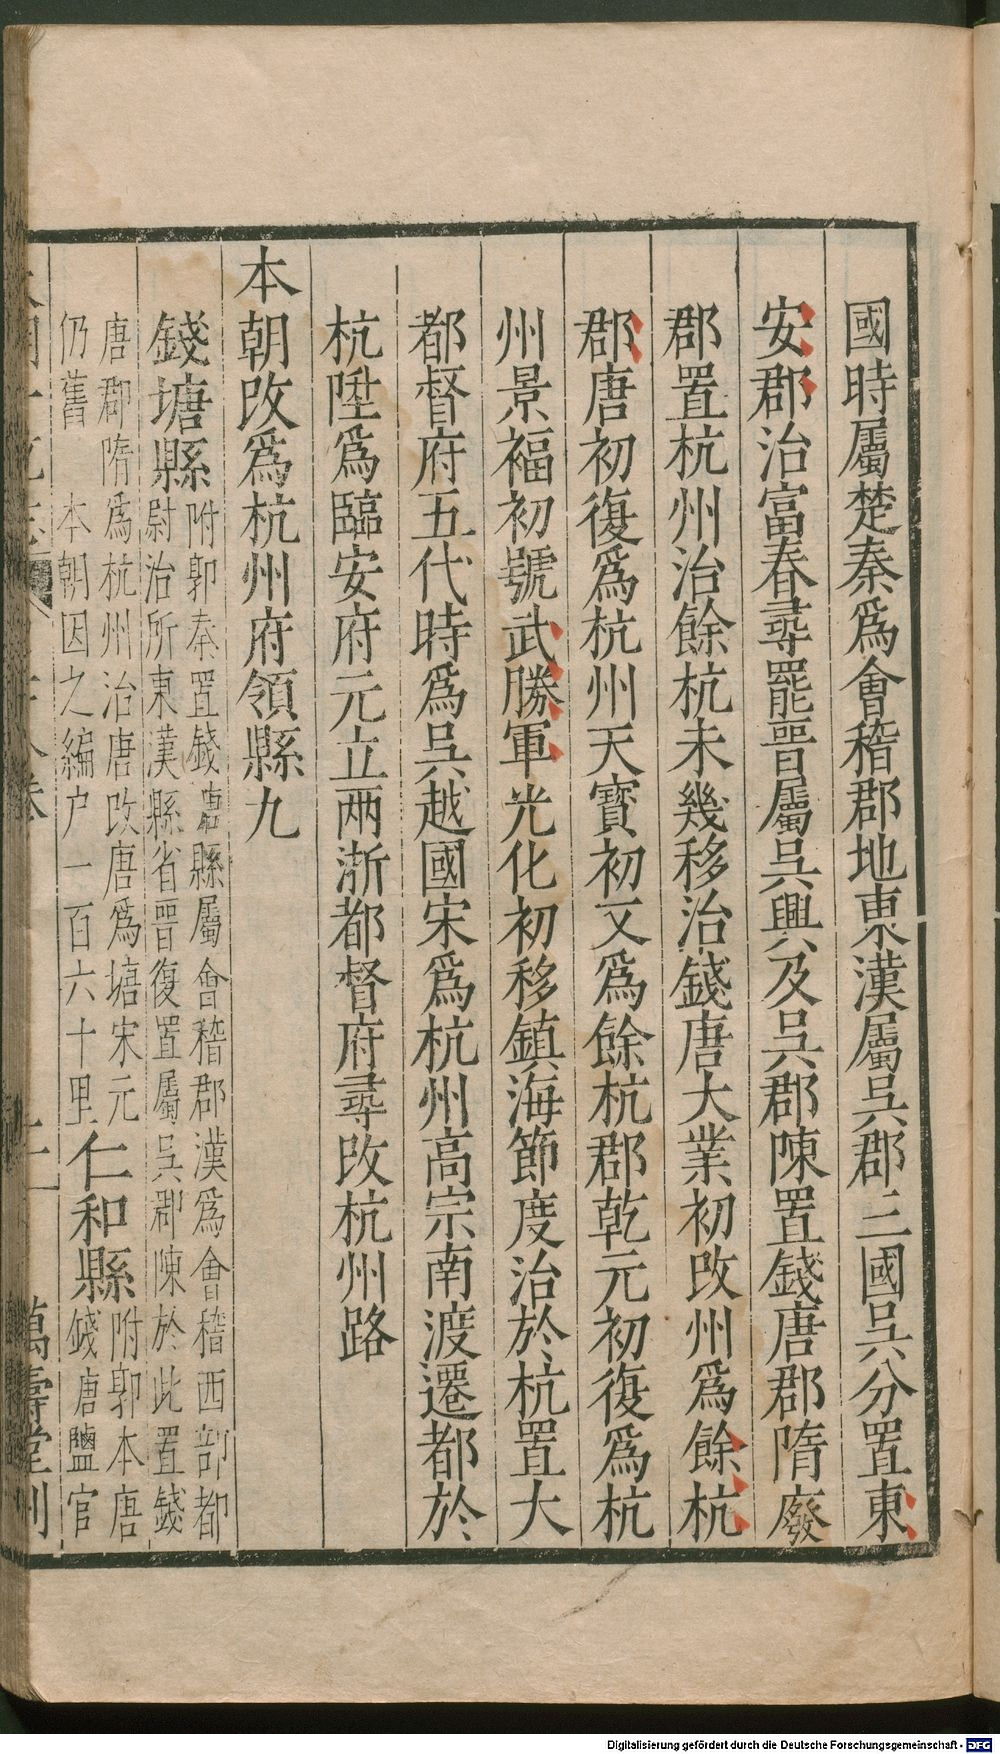 國時屬楚秦爲會稽郡地東漢屬吳郡三國吳分置東
安郡治富春尋罷晉屬吳興及吳郡陳置錢唐郡隋廢
郡置杭州治餘杭未幾移治錢唐大業初改州爲餘杭
郡唐初復爲杭州天寶初又爲餘杭郡乾元初復爲杭
州景福初號武勝軍光化初移鎮海節度治於杭置大
都督府五代時爲吳越國宋爲杭州高宗南渡遷都於
杭陞爲臨安府元立兩浙都督府尋改杭州路
本朝改爲杭州府領縣九
錢塘縣
附郭秦置錢唐縣屬會稽郡漢爲會稽西部都
尉治所東漢縣省晉復置屬吳郡陳於此置錢
唐郡隋爲杭州治唐改唐爲塘宋元
仍舊 本朝因之編户一百六十里
仁和縣
附郭本唐
錢唐鹽官
萬壽堂刊
Digitalisierung gefördert durch die Deutsche Forschungsgemeinschaft - DFG